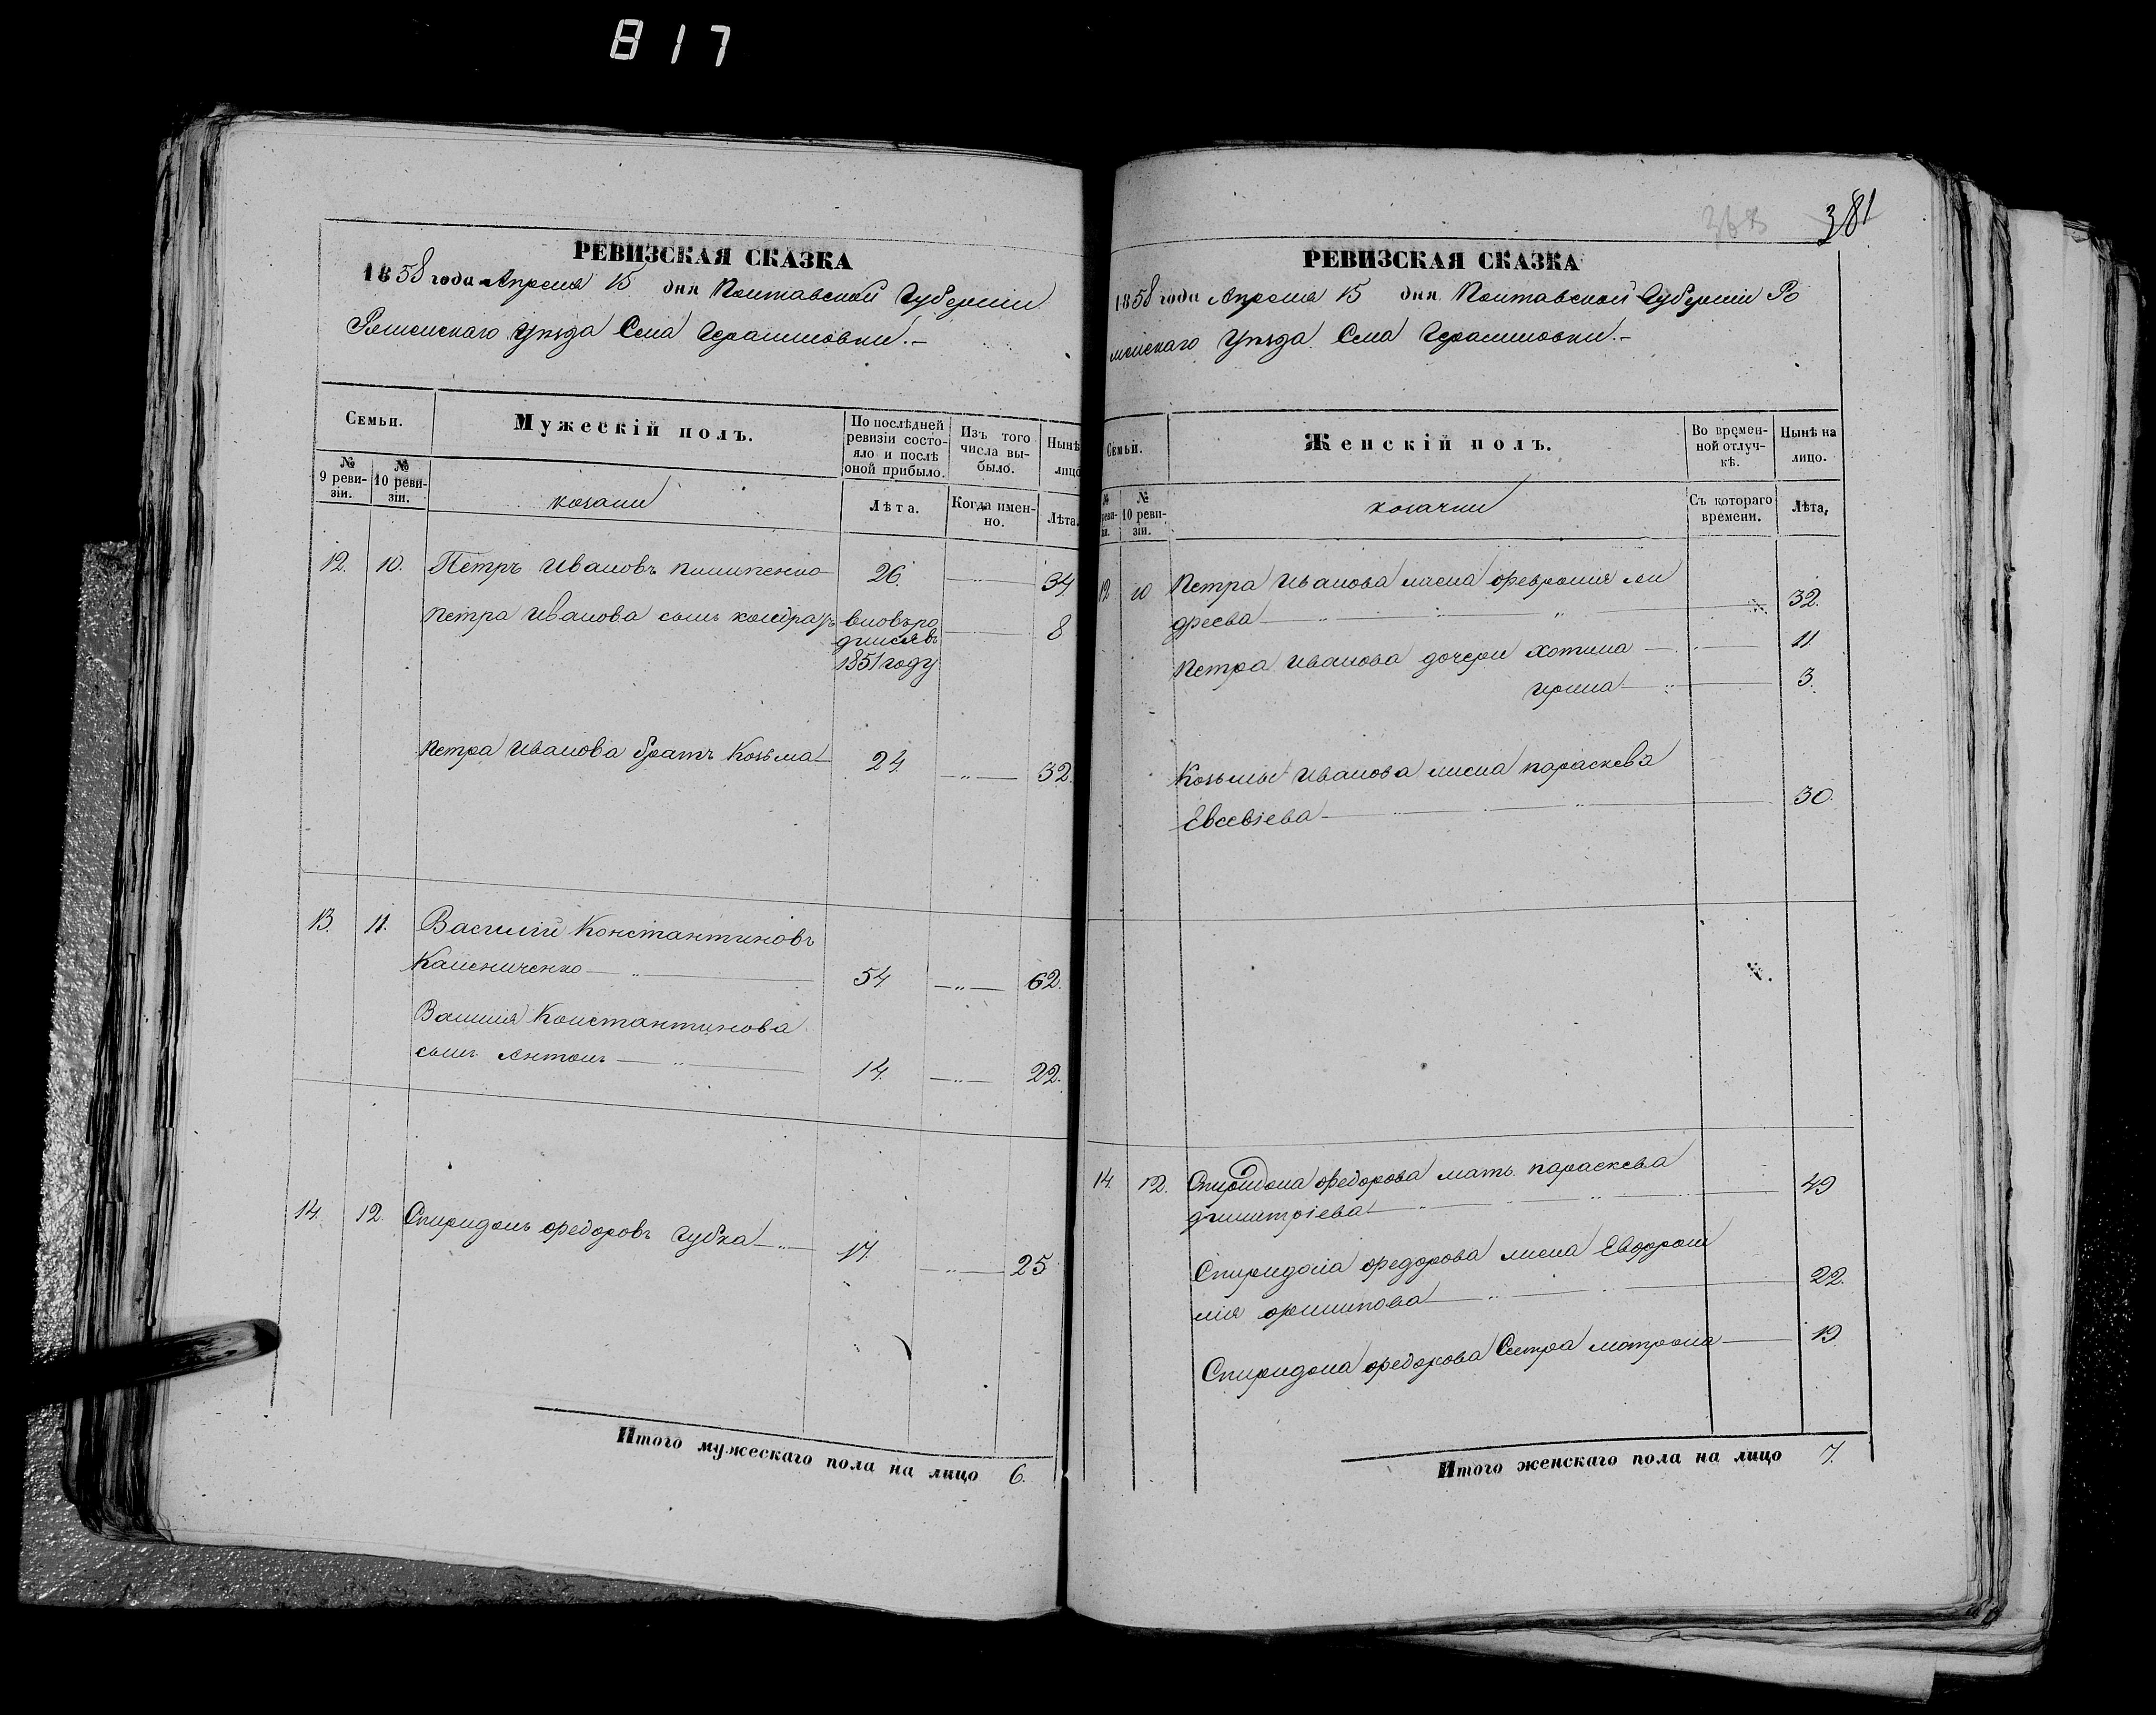 817
РЕВИЗСКАЯ СКАЗКА
1858 года Апреля 15 дня Полтавской Губерніи
Роменскаго Уѣзда Села Герасимовки.-
Семьи.
Мужескій полъ.
По послѣдней ревизіи состояло и послѣ оной прибыло.
Изъ того числа выбыло.
Нынѣ лицо
№ 9 ревизіи.
№ 10 ревизіи.
козаки
Лѣта.
Когда именно.
Лѣта.
12. 10. Петръ Ивановъ Пилипенко 26. 34
Петра Иванова сынъ Кондратъ вновь ро 8
дился въ
1851 году
Петра Иванова братъ Козьма 24. 32.
13. 11. Василій Константиновъ
54. 62.
Василія Константинова
сынъ Антонъ 14. 22.
14. 12. Спиридонъ Федоровъ Губка 17. 25
Итого мужескаго пола на лицо 6.
368 381
РЕВИЗСКАЯ СКАЗКА
1858 года Апреля 15 дня Полтавской Губерніи Ро
менскаго Уѣзда Села Герасимовки.-
Семьи.
Женскій полъ.
Во временной отлучкѣ.
Нынѣ на лицо.
№ реви- зіи.
№ 10 ревизіи.
козачки
Съ котораго времени.
Лѣта,
12 10 Петра Иванова жена Феврония Ан
дреева 32.
Петра Иванова дочери Хотина 11.
Ирина 3.
Козьмы Иванова жена Параскева
Евсевіева 30.
14. 12. Спиридона Федорова мать Параскева
Димитріева 49
Спиридона Федорова жена Евфроси
нія Филипова 22.
Спиридона Федорова Сестра Матрона 19.
Итого женскаго пола на лицо 7.